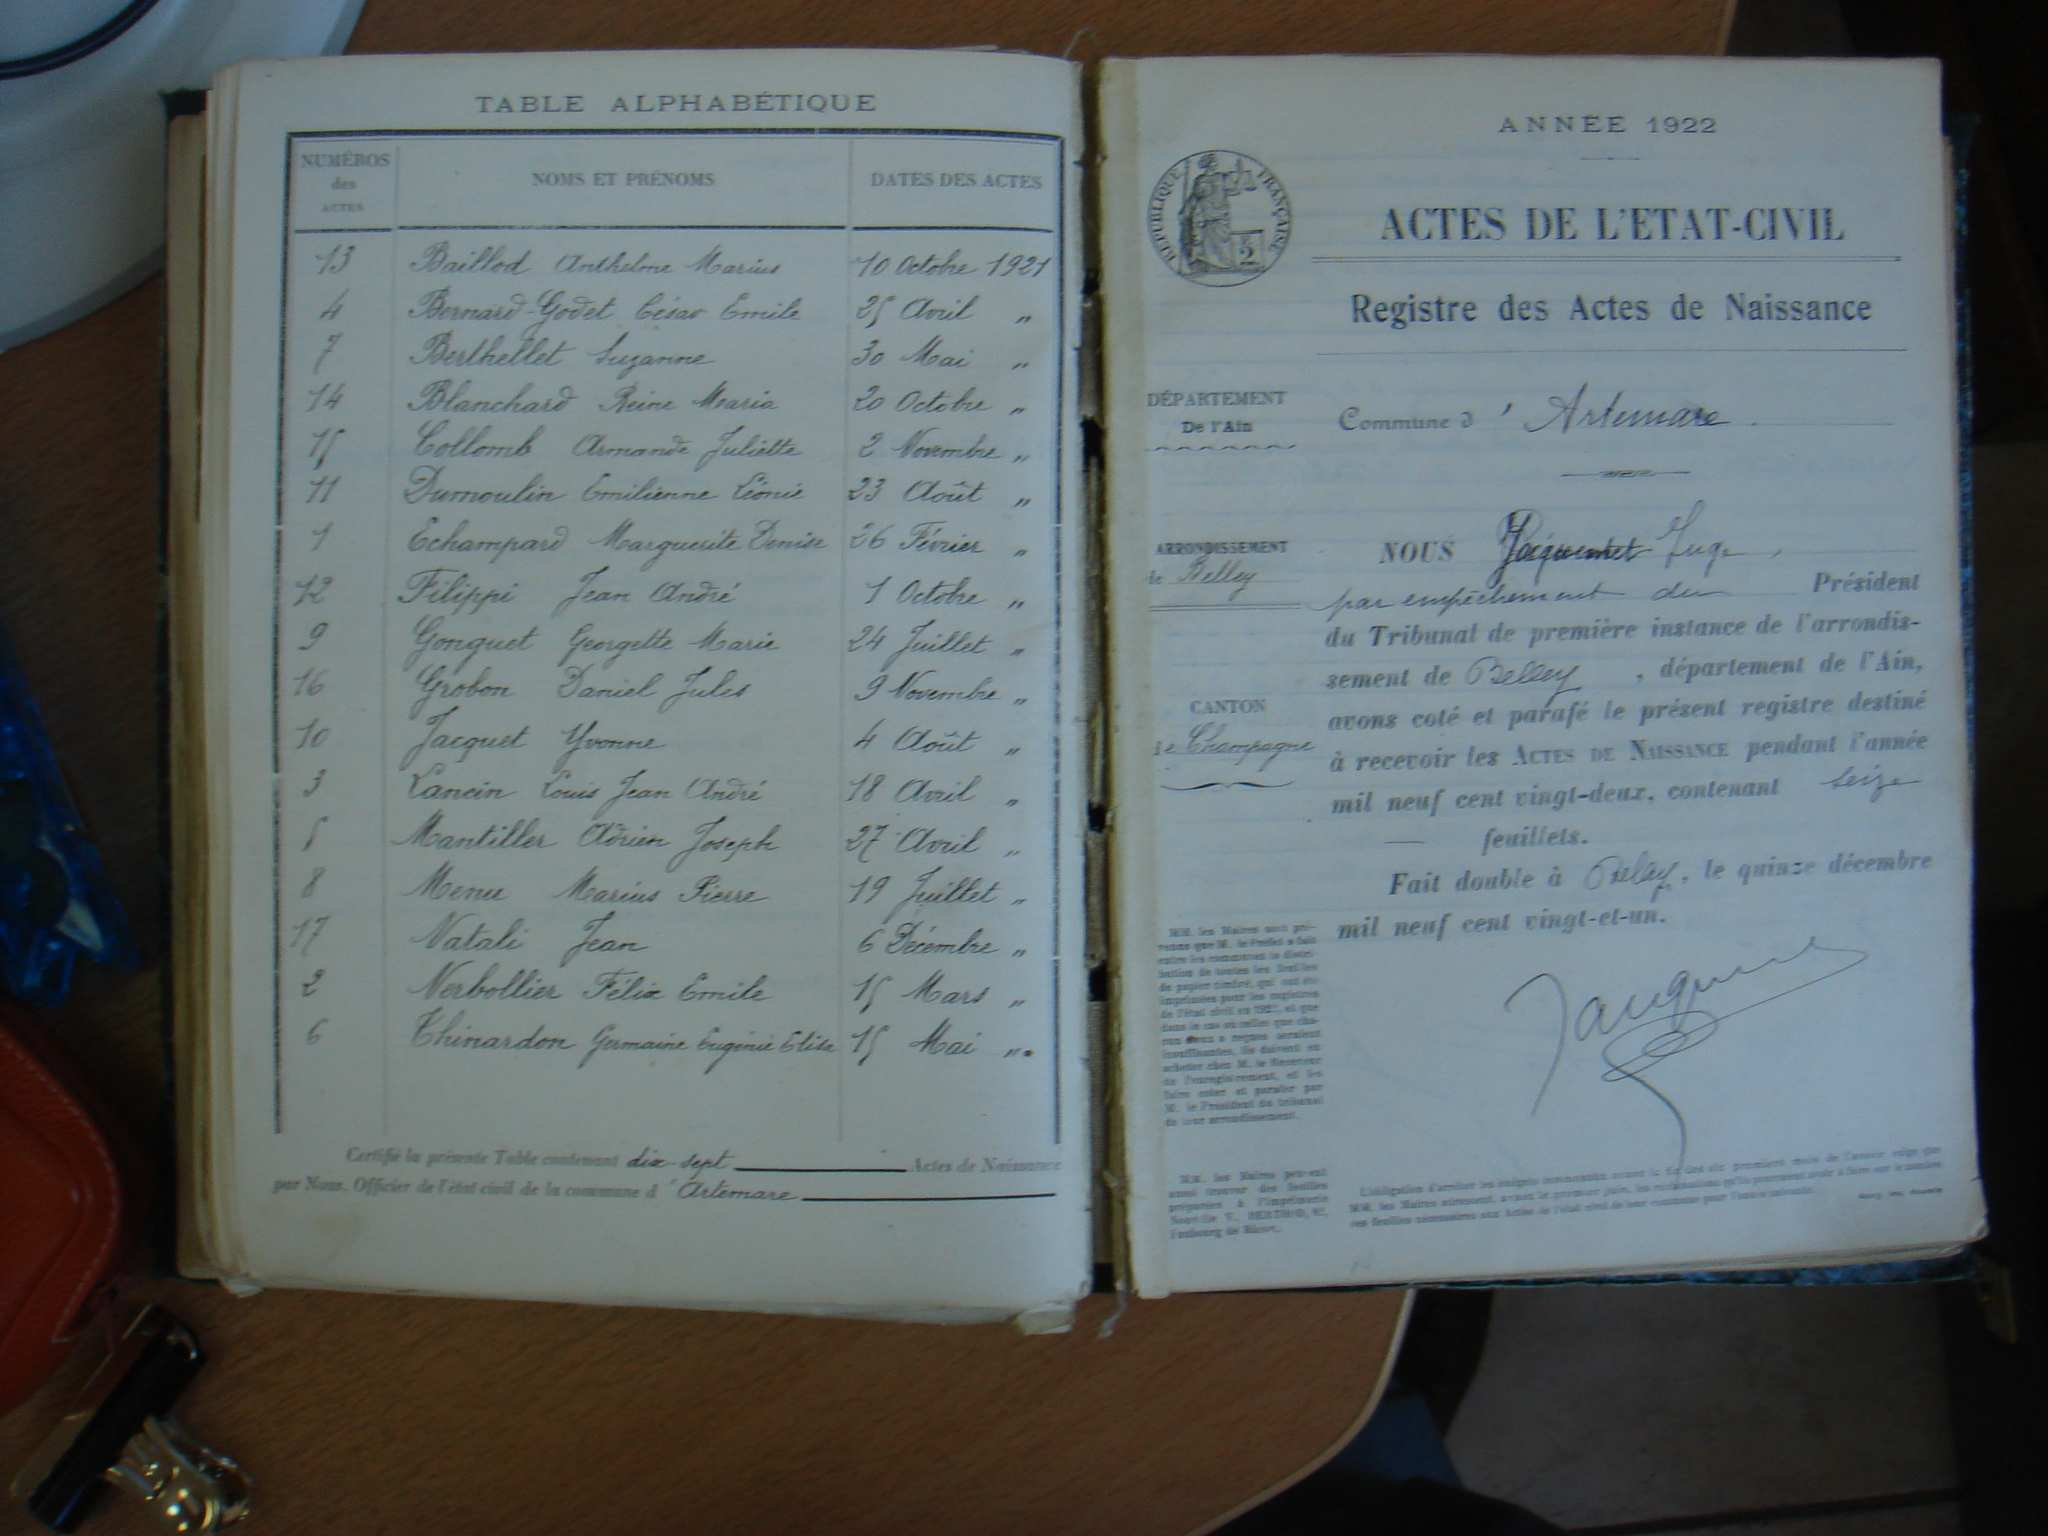 TABLE ALPHABÉTIQUE
NUMÉROS des ACTES NOMS ET PRÉNOMS DATES DES ACTES
13 Baillod Anthelme Marius 10 Octobre 1921
4 Bernard-Godet César Emile 25 Avril "
7 Berthellet Suzanne 30 Mai "
14 Blanchard Reine Maria 20 Octobre "
15 Collomb Armande Juliette 2 Novembre "
11 Dumoulin Emilienne Léonie 23 Août "
1 Echampard Marguerite Denise 26 Février "
12 Filippi Jean André 1 Octobre "
9 Gonguet Georgette Marie 24 Juillet "
16 Grobon Daniel Jules 9 Novembre "
10 Jacquet Yvonne 4 Août "
3 Lancin Louis Jean André 18 Avril "
5 Mantiller Adrien Joseph 27 Avril "
8 Menu Marius Pierre 19 Juillet "
17 Natali Jean 6 Décembre "
2 Nerbollier Félix Emile 15 Mars "
6 Thinardon Germaine Eugénie Elisa 15 Mai "
Certifié la présente Table contenant dix-sept Actes de Naissance
par Nous, Officier de l'état civil de la commune d'Artemare
ANNÉE 1922
RÉPUBLIQUE FRANÇAISE
2
ACTES DE L'ETAT-CIVIL
Registre des Actes de Naissance
DÉPARTEMENT
De l'Ain
Commune d'Artemare
ARRONDISSEMENT
de Belley
CANTON
de Champagne
NOUS Juge,
par empêchement du Président
du Tribunal de première instance de l'arrondis-
sement de Belley, département de l'Ain,
avons coté et parafé le présent registre destiné
à recevoir les ACTES DE NAISSANCE pendant l'année
mil neuf cent vingt-deux, contenant seize
feuillets.
Fait double à Belley, le quinze décembre
mil neuf cent vingt-et-un.
MM. les Maires sont pré-
venus que M. le Préfet a fait
entre les communes la distri-
bution de toutes les feuilles
de papier timbré, qui ont été
imprimées pour les registres
de l'état civil en 1922, et que
dans le cas où celles que cha-
cun d'eux a reçues seraient
insuffisantes, ils doivent en
acheter chez M. le Receveur
de l'enregistrement, et les
faire coter et parafer par
M. le Président du tribunal
de leur arrondissement.
MM. les Maires peuvent
aussi trouver des feuilles
préparées à l'imprimerie